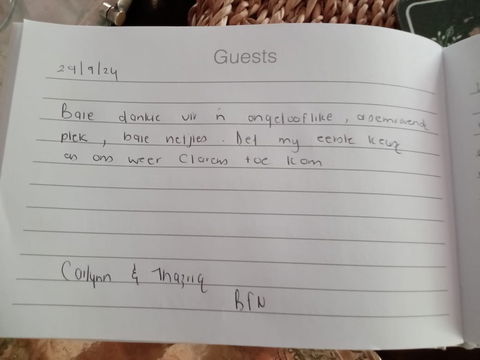 Guests
29/9/24
Baie dankie vir 'n ongelooflike, asemrowend
plek, baie netjies. Def my eerste keuse
as ons weer Clarens toe kom
Carlynn & Thaziq
BFN